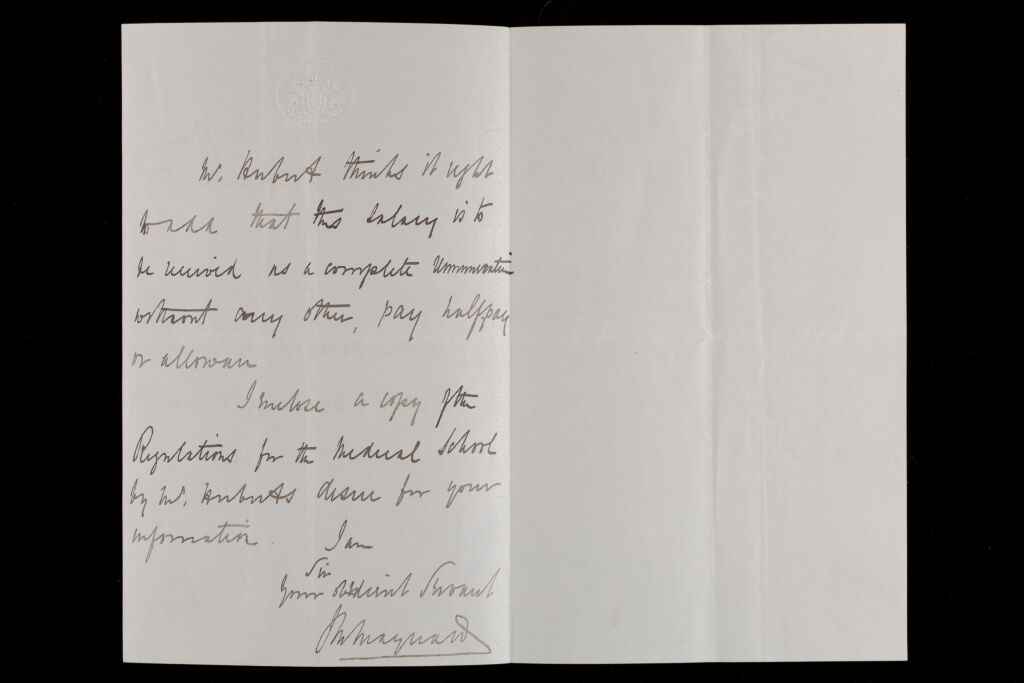 Mr. Herbert thinks it right
to add that this salary is to
be received as a complete remuneration
without any other, pay halfpay
or allowance
I enclose a copy of the
Regulations for the Medical School
by Mr. Herberts desire for your
information.
I am
Sir
Your obedient Servant
Maynard